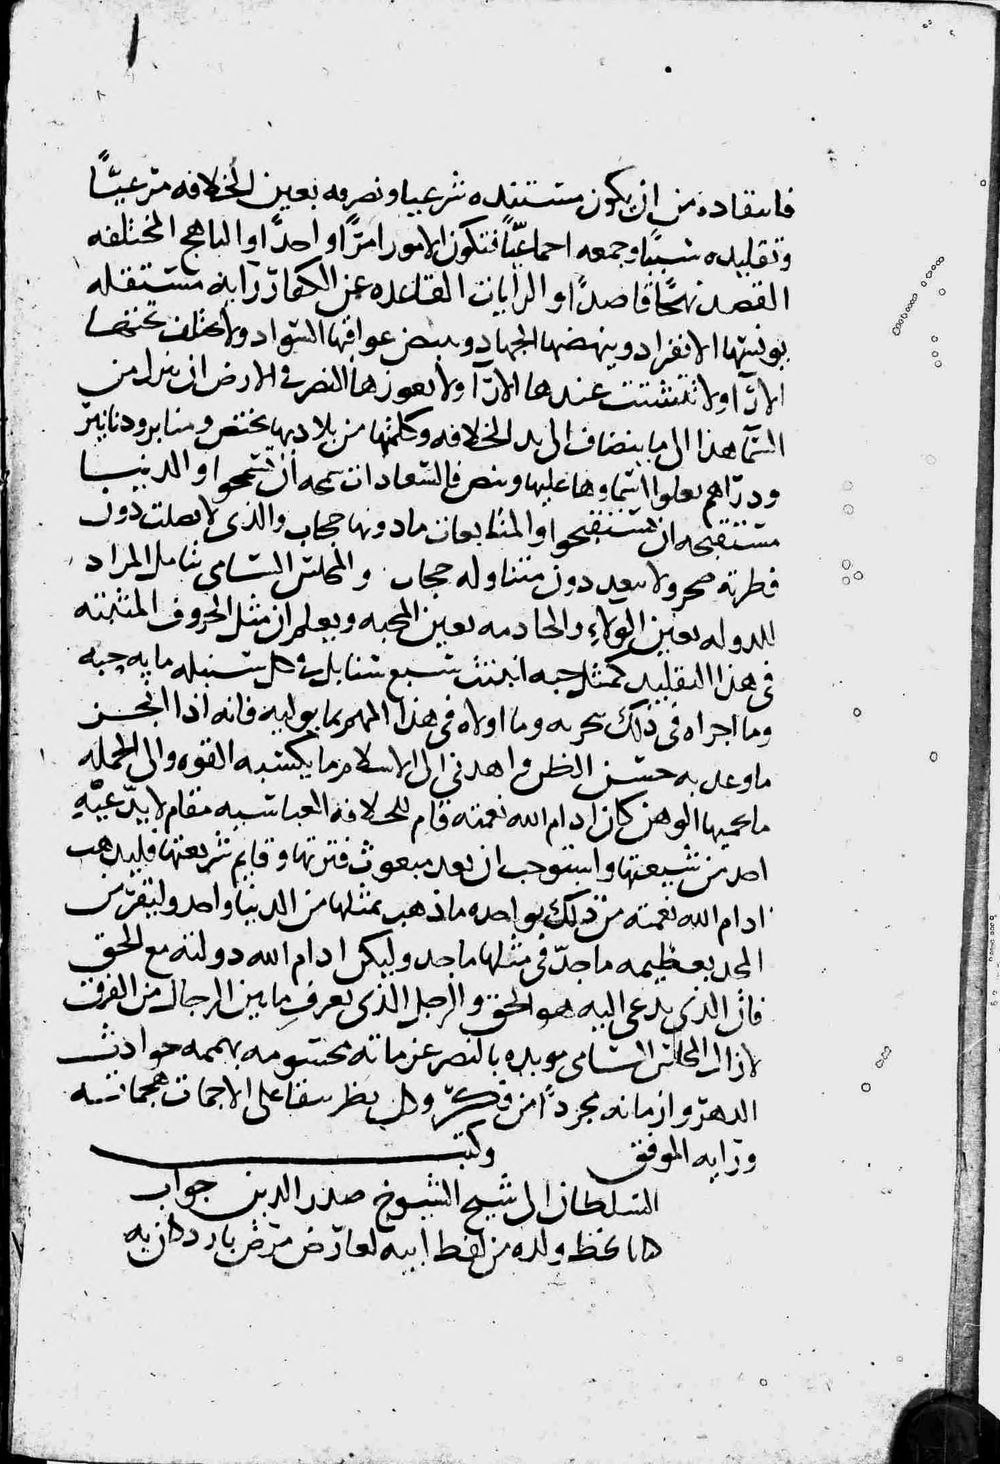 فانتقاده من ان يكون مستنده شرعيا وتصرفه بعين الخلافه مرعيًّا
وتقليده سببًا وجمعه اجماعيًّا فتكون الامور امرًا واحدًا والمناهج المختلفه
القصد نهجًا قاصدًا والرايات القاعده عن الكفار راية مستقله
يونسها الانفراد وينهضها الجهاد وببيض عواقبها السواد ولا تختلف تحتها
الآرا ولا تتشتت عندها الآرا ولا يعوزها النصر في الارض ان ينزل من
السما هذا الى ما ينضاف الى يد الخلافه وكلمتها من بلاد بها يختص ومنابر ودنانير
ودراهم تعلوا اسماوها عليها وينص فالسعادات سمحه ان تسمحوا والدنيا
مستفتحه ان تستفتحوا والمتابعات ما دونها حجاب والذي لا يصلت دون
فطرته صحر ولا يبعد دون متناوله حجاب والمجلس السامي شامل المراد
للدوله بعين الولاء والخادمه بعين المحبه ويعلم ان مثل الحروف المثبته
في هذا التقليد كمثل حبه انبتت سبع سنابل في كل سنبله مايه حبه
وما اجراه في ذلك نحريه وما اولاه في هذا المهم بما يوليه فانه اذا انجز
ما وعد به حسن الظن واهدى الى الاسلام ما يكسبه القوه والى الجمله
ما يحميها الوهن كان ادام الله نعمته قام للخلافة العباسيه مقام لا يدّعيه
احد من شيعتها واستوجب ان يعد مبعوث فترتها وقايم شريعتها فليذهب
ادام الله نعمته من ذلك بواحده ما ذهب بمثلها من الدنيا واحد وليتفرس
المجد بعظيمه ما جدّ في مثلها ماجد وليكن ادام الله دولته مع الحق
فان الذي يدعى اليه هو الحق والرجل الذي يعرف ما بين الرجال من الفرق
لا زال المجلس السامي مويده بالنصر عزماته محسومه بهممه حوادث
الدهر وازمانه مجردًا من فكره وكل نظر سقاعلى الاجمات هجماته
ورايه الموفق وكتب
السلطان الى شيخ الشيوخ صدر الدين جواب
كتاب بخط ولده من لفظ ابيه لعارض مرض بارد كان به